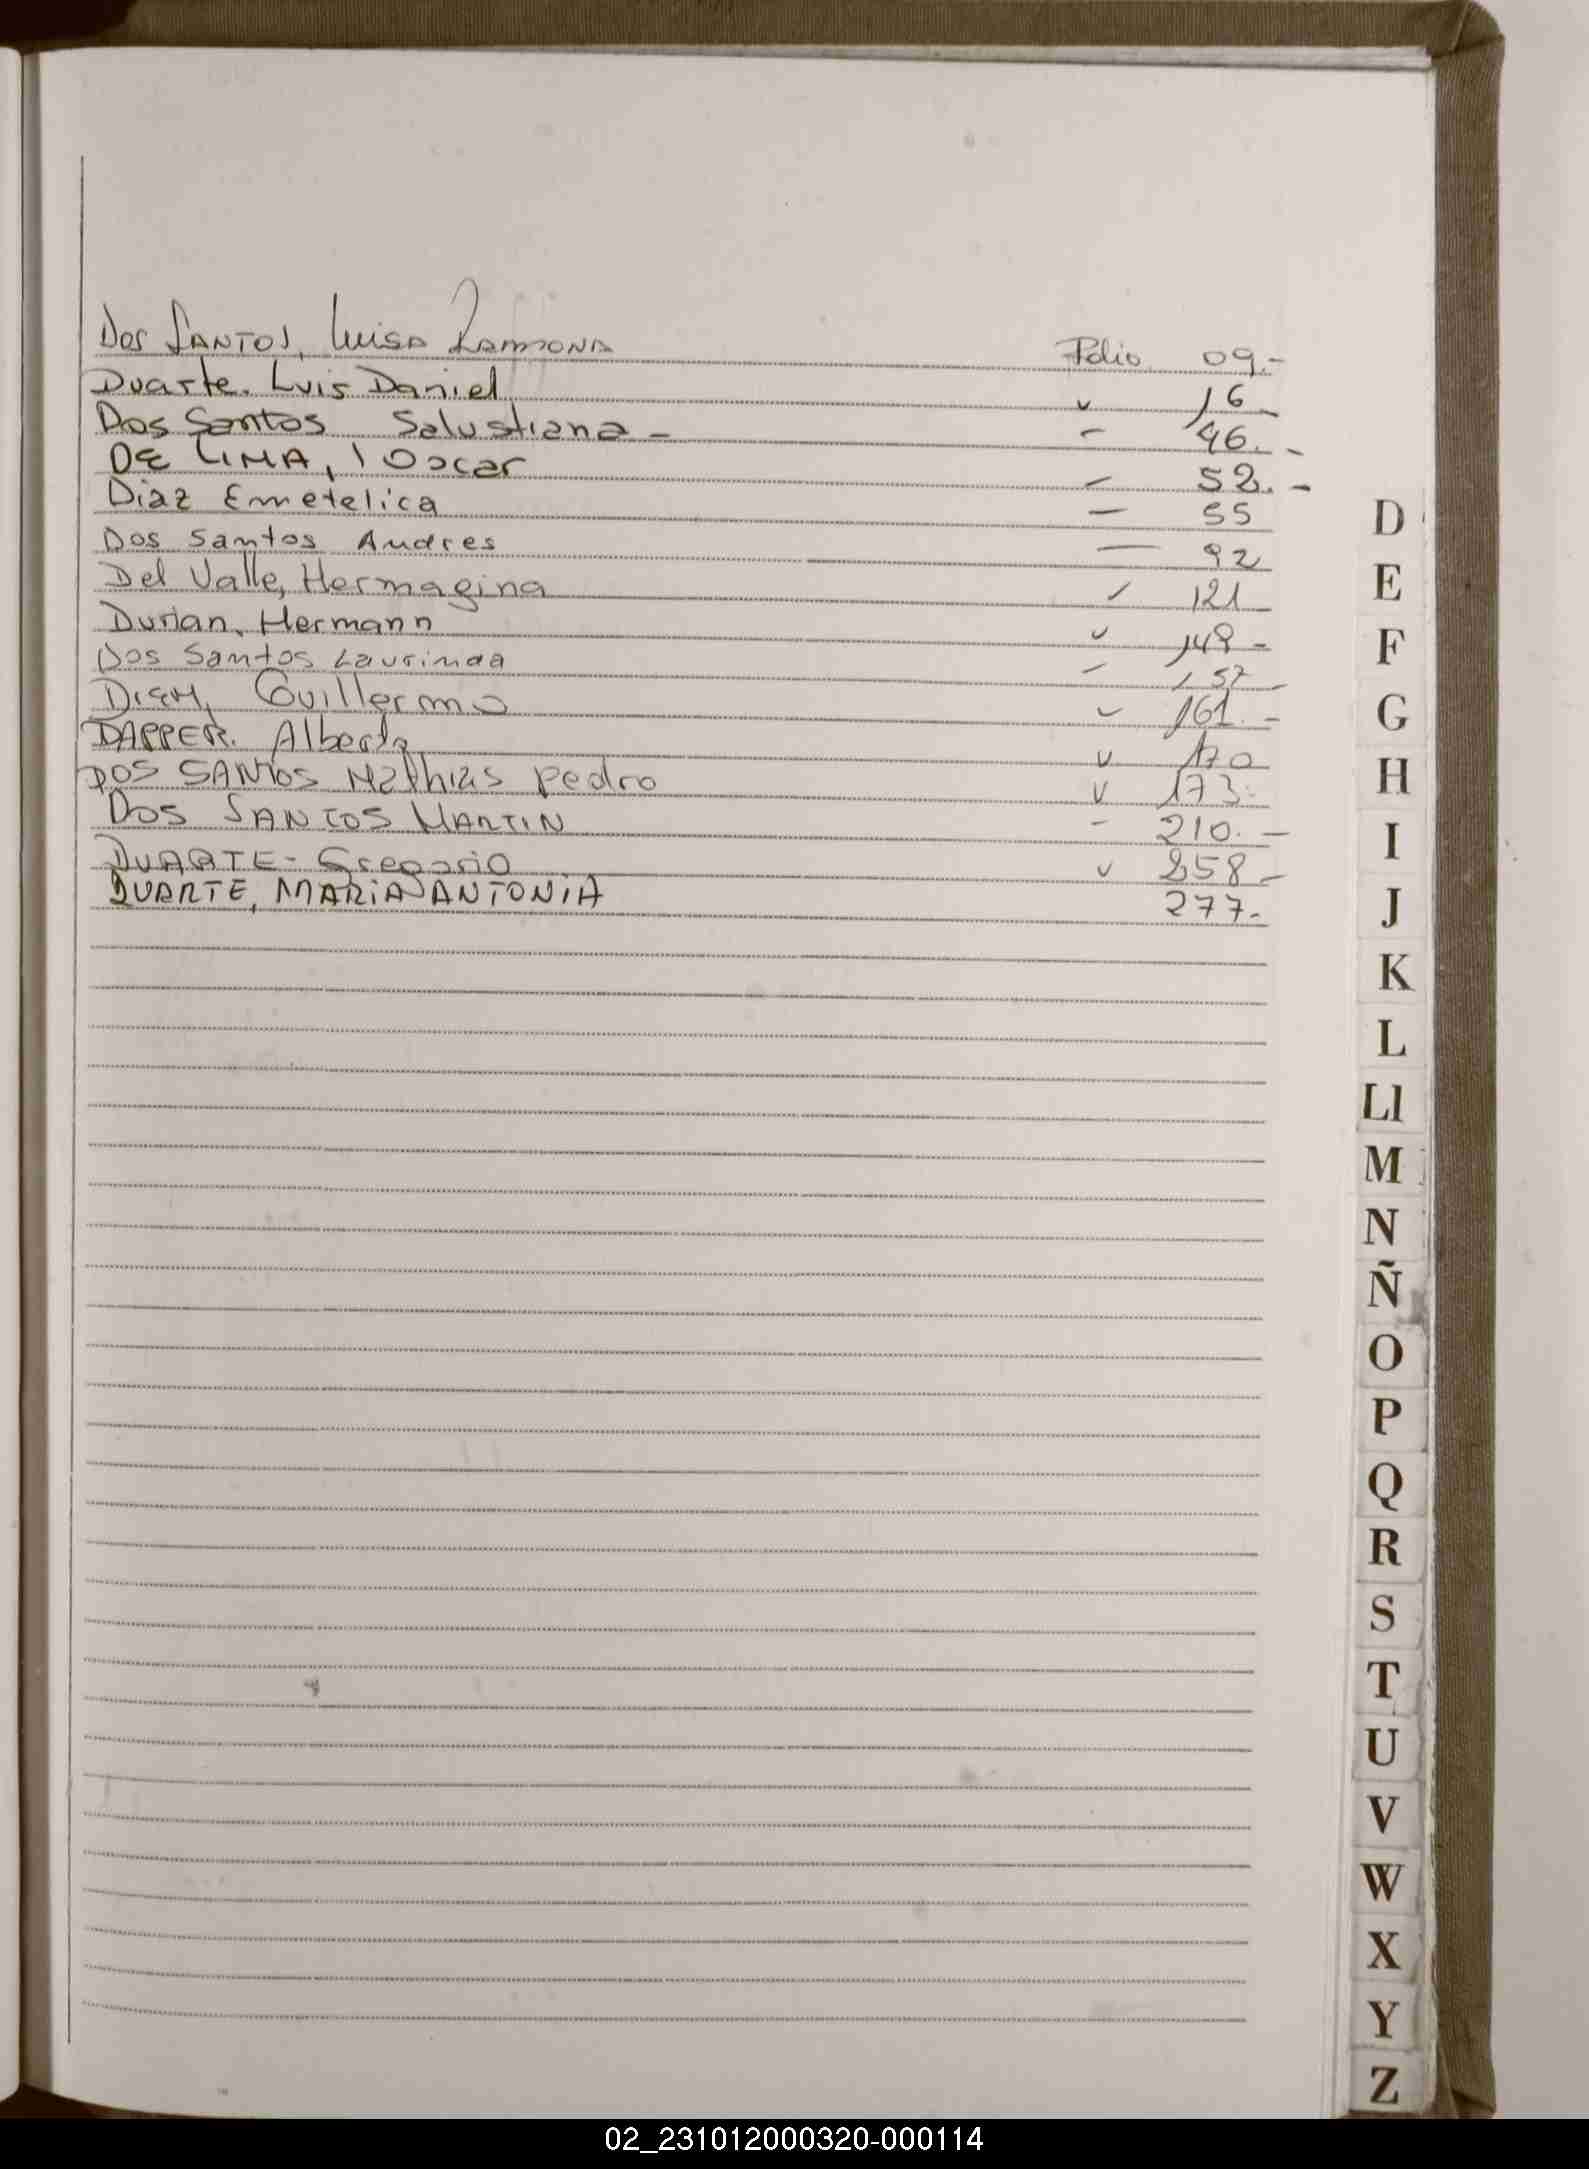 Dos SANTOS, Luisa RAMONA Folio 09.-
Duarte. Luis Daniel " 16 -
Dos Santos Salustiana - - 46. -
DE LIMA, Oscar - 52. -
Diaz Emetelica - 55
Dos Santos Andres — 92
Del Valle, Hermagina - 121 -
Durian, Hermann " 149 -
Dos Santos Laurinda - 157 -
DIEM, Guillermo " 161. -
DAPPER. Alberto " 170
DOS SANTOS Mathias Pedro " 173.
DOS SANTOS MARTIN - 210. -
DUARTE - Gregorio " 258 -
DUARTE, MARIA ANTONIA 277.-
D
E
F
G
H
I
J
K
L
Ll
M
N
Ñ
O
P
Q
R
S
T
U
V
W
X
Y
Z
02_231012000320-000114